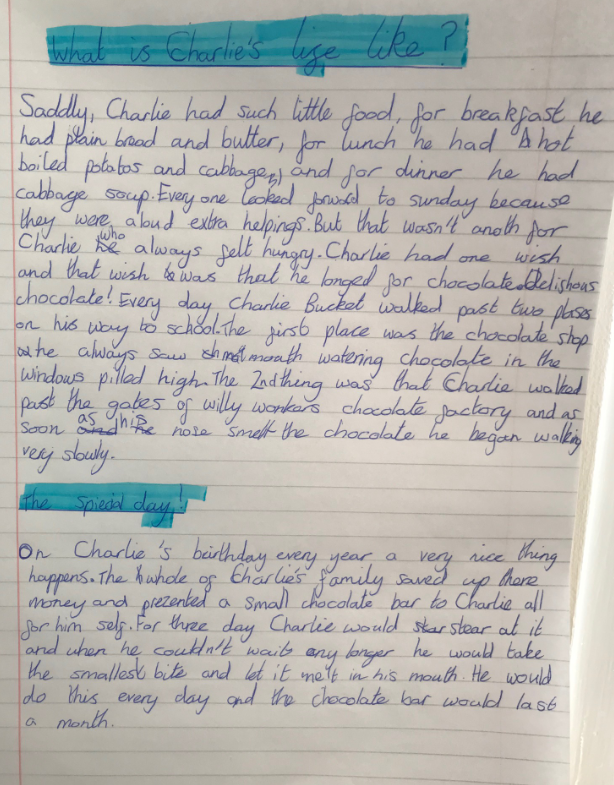 What is Charlie's life like?
Saddly, Charlie had such little food, for breakfast he
had plain bread and butter, for lunch he had hot
boiled potatos and cabbage, and for dinner he had
cabbage soup. Every one looked forward to sunday because
they were aloud extra helpings. But that wasn't anoth for
Charlie who always felt hungry. Charlie had one wish
and that wish was that he longed for chocolate. Delishous
chocolate! Every day Charlie Bucket walked past two plases
on his way to school. The first place was the chocolate shop
he always saw mouth watering chocolate in the
windows pilled high. The 2nd thing was that Charlie walked
past the gates of willy wonkars chocolate factory and as
soon as his nose smelt the chocolate he began walking
very slowly.
The spiecial day!
On Charlie's birthday every year a very nice thing
happens. The whole of Charlie's family saved up there
money and prezented a small chocolate bar to Charlie all
for him self. For three day Charlie would stear at it
and when he couldn't wait any longer he would take
the smallest bite and let it melt in his mouth. He would
do this every day and the chocolate bar would last
a month.